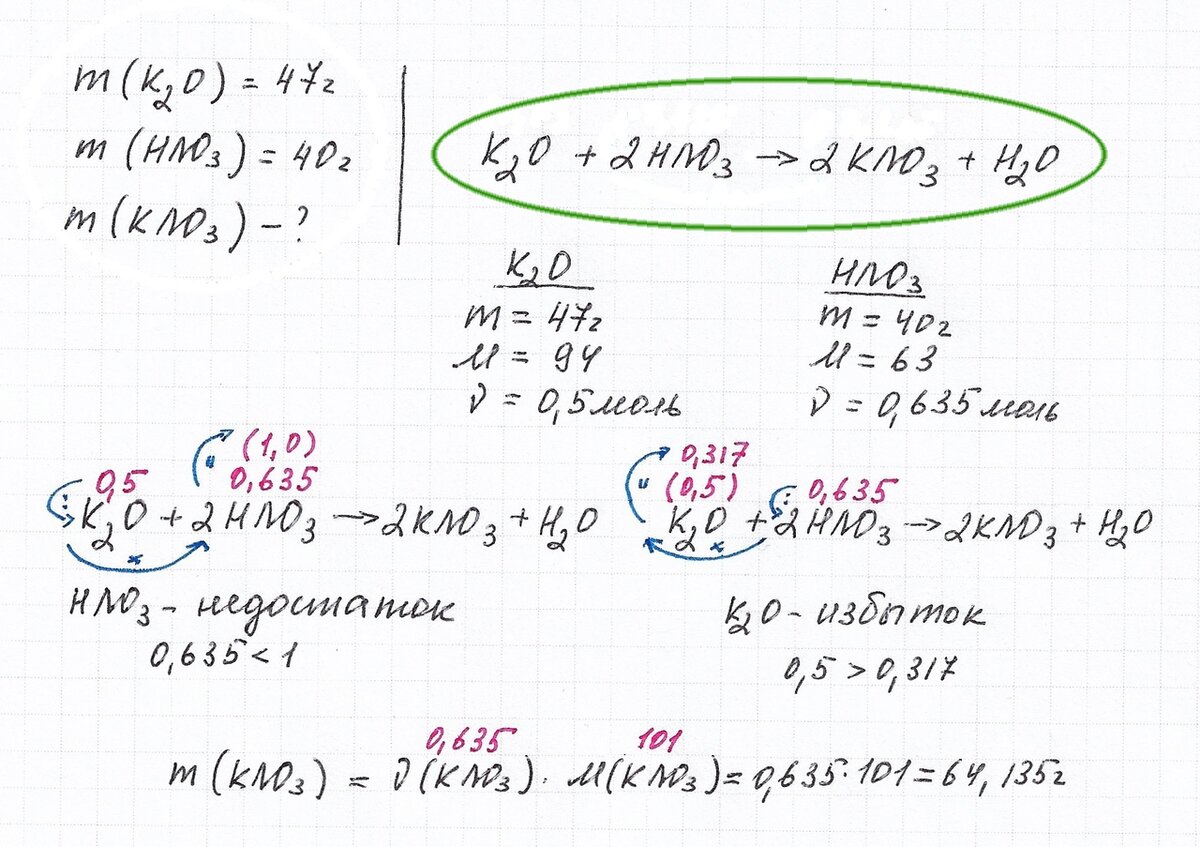 m(K₂O) = 47г
m(HNO₃) = 40г
m(KNO₃) – ?
K₂O + 2HNO₃ → 2KNO₃ + H₂O
K₂O
m = 47г
M = 94
ν = 0,5 моль
HNO₃
m = 40г
M = 63
ν = 0,635 моль
(1,0)
0,5 0,635
: x
K₂O + 2HNO₃ → 2KNO₃ + H₂O
x
HNO₃ – недостаток
0,635 < 1
0,317
(0,5) 0,635
:
K₂O + 2HNO₃ → 2KNO₃ + H₂O
x
K₂O – избыток
0,5 > 0,317
0,635 101
m(KNO₃) = ν(KNO₃) · M(KNO₃) = 0,635 · 101 = 64,135г